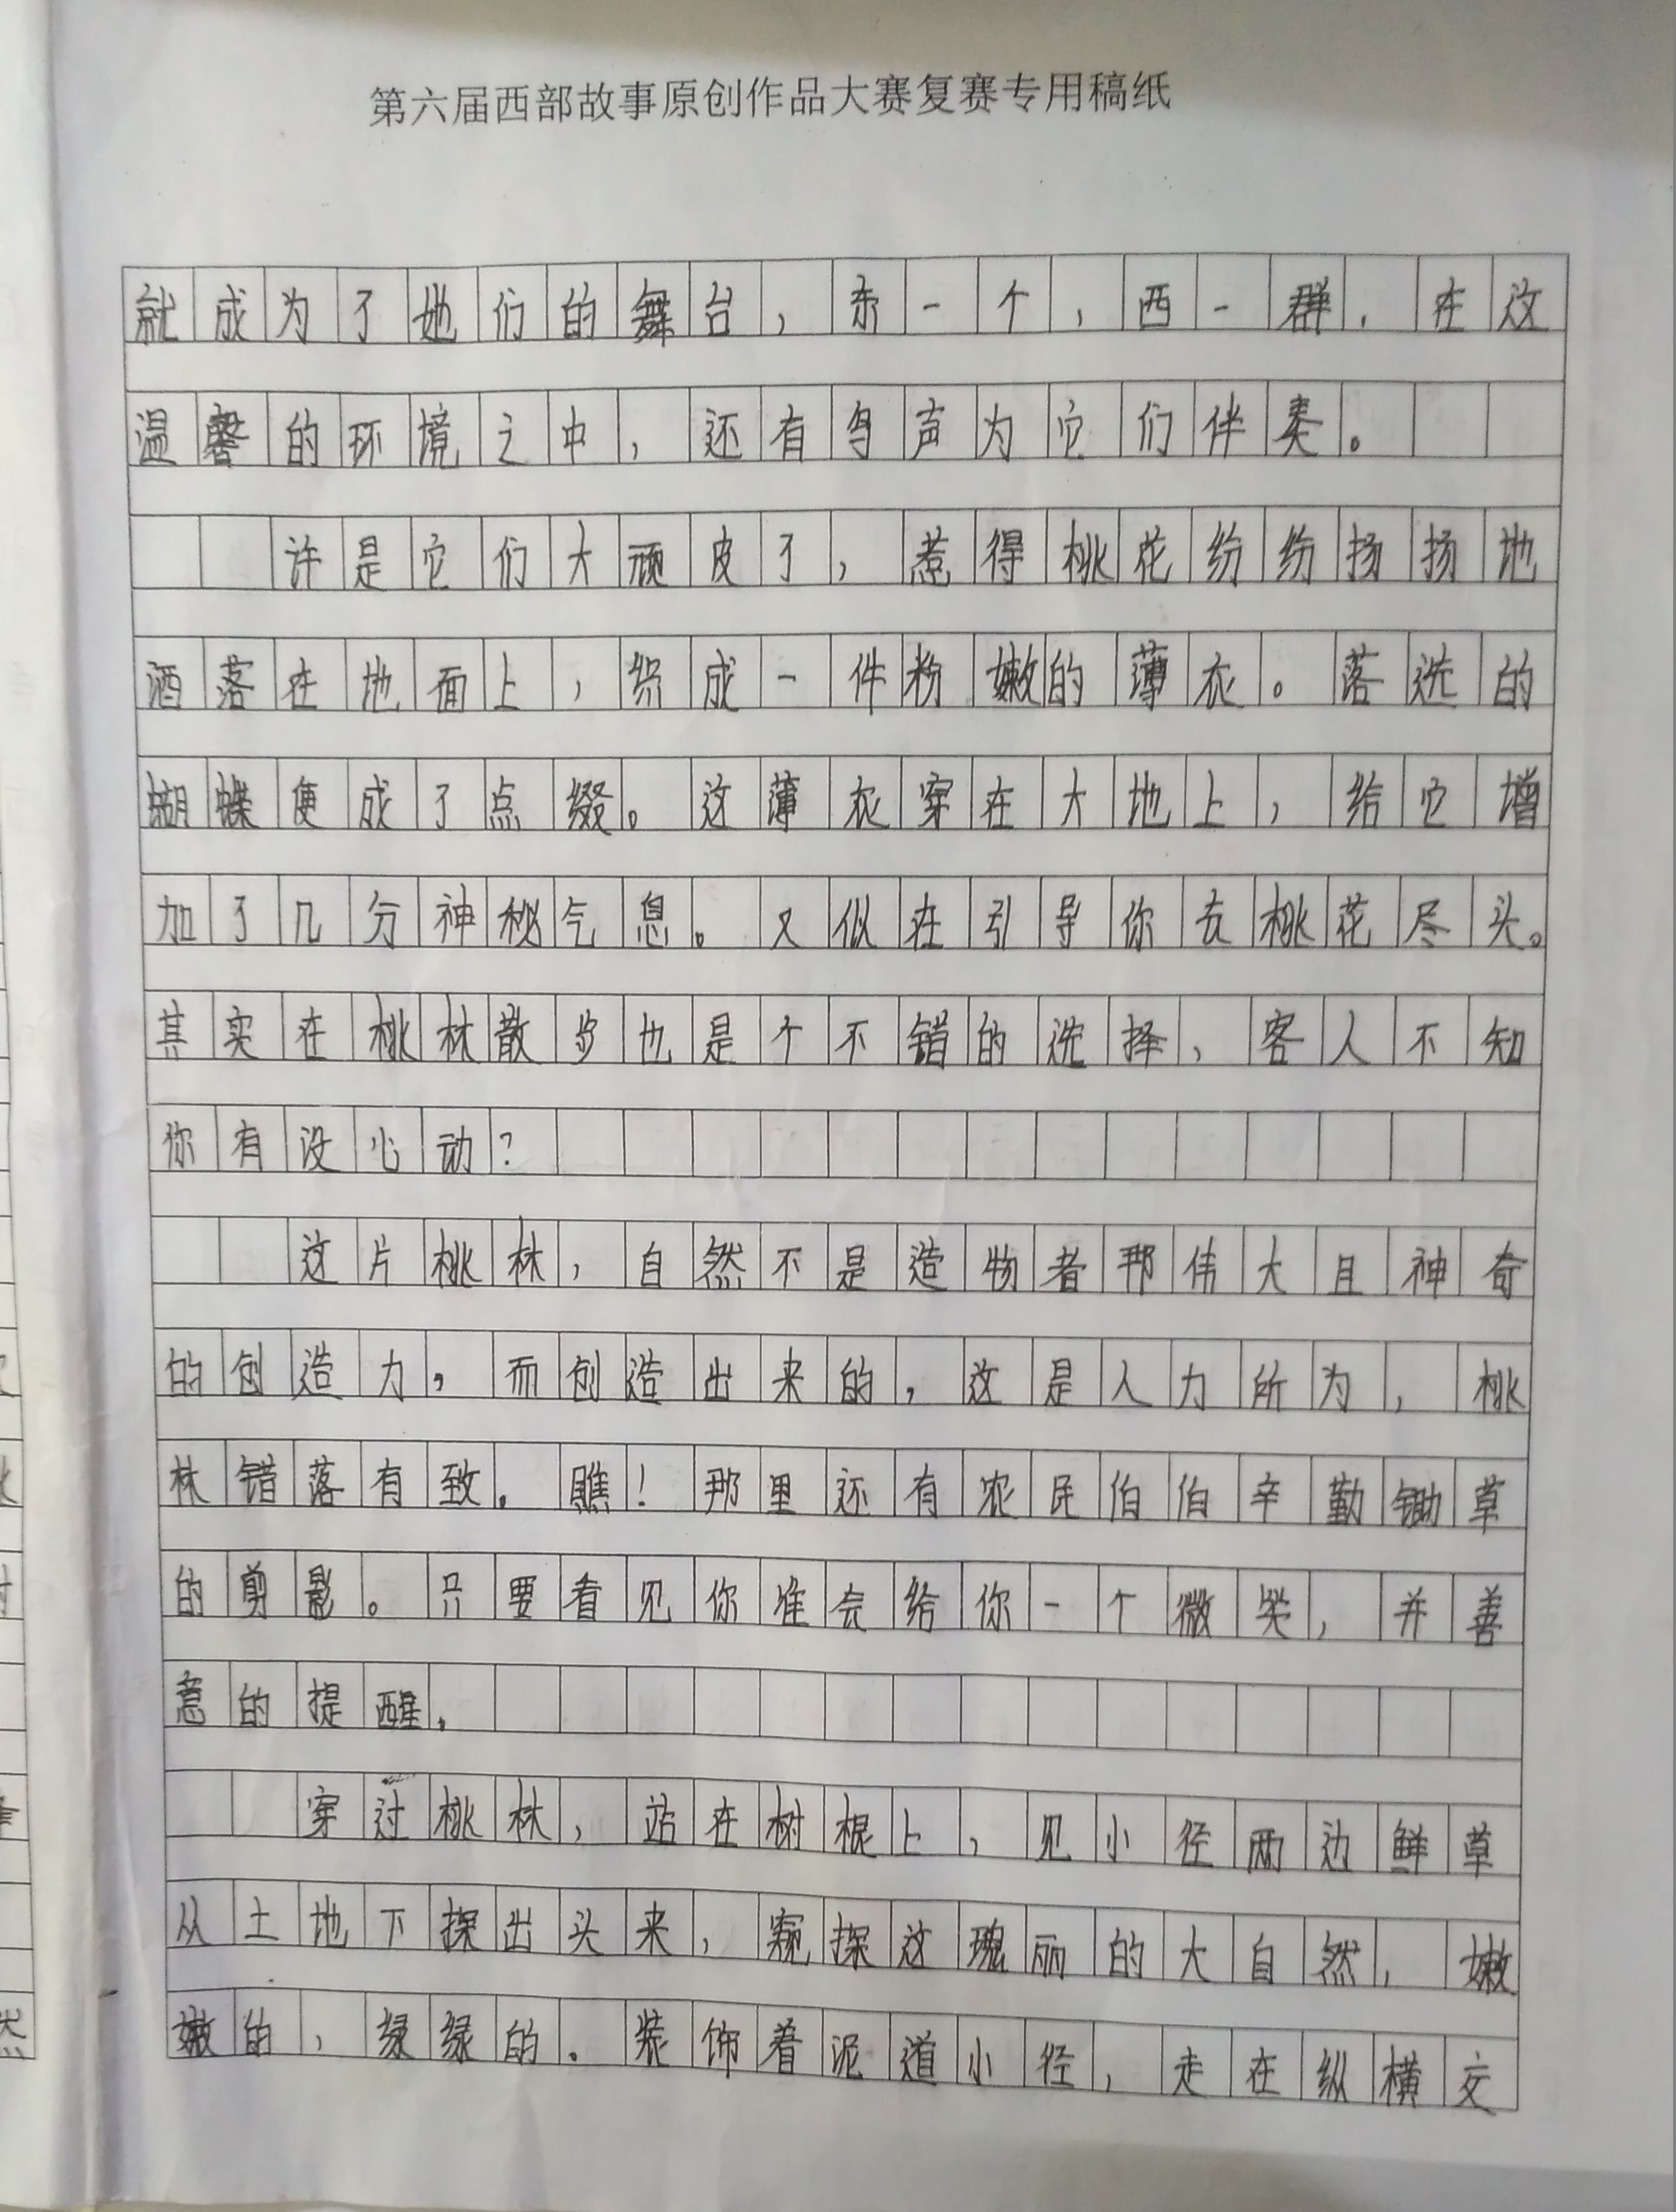 第六届西部故事原创作品大赛复赛专用稿纸
就成为了她们的舞台，东一个，西一群，在这
温馨的环境之中，还有鸟声为它们伴奏。
许是它们大顽皮了，惹得桃花纷纷扬扬地
洒落在地面上，织成一件粉嫩的薄衣。落选的
蝴蝶便成了点缀。这薄衣穿在大地上，给它增
加了几分神秘气息。又似在引导你去桃花尽头。
其实在桃林散步也是个不错的选择，客人不知
你有没心动？
这片桃林，自然不是造物者那伟大且神奇
的创造力，而创造出来的，这是人力所为，桃
林错落有致。瞧！那里还有农民伯伯辛勤锄草
的剪影。只要看见你准会给你一个微笑，并善
意的提醒，
穿过桃林，站在树根上，见小径两边鲜草
从土地下探出头来，窥探这瑰丽的大自然，嫩
嫩的，绿绿的。装饰着泥道小径，走在纵横交